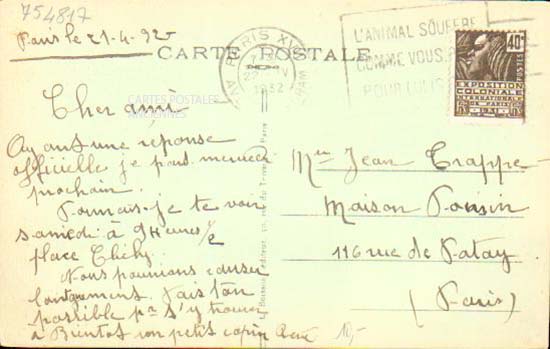 754817
Paris le 21-4-32
CARTE POSTALE
PARIS XV
1932
L'ANIMAL SOUFFRE
COMME VOUS
POUR LUI
40c
POSTES
EXPOSITION
COLONIALE
INTERNATIONALE
DE PARIS
1931
CARTES POSTALES
ANCIENNES
Cher ami
Ayant une reponse
officielle je pars mercredi
prochain.
Pourrais-je te voir
samedi à 9 Heures 1/2
place Clichy.
Nous pourrions causer
longuement. Fais ton
possible pr s'y trouver
à Bientot ton petit copin René
10,-
Jean Trappe
Maison Poussin
116 rue de Patay
(Paris)